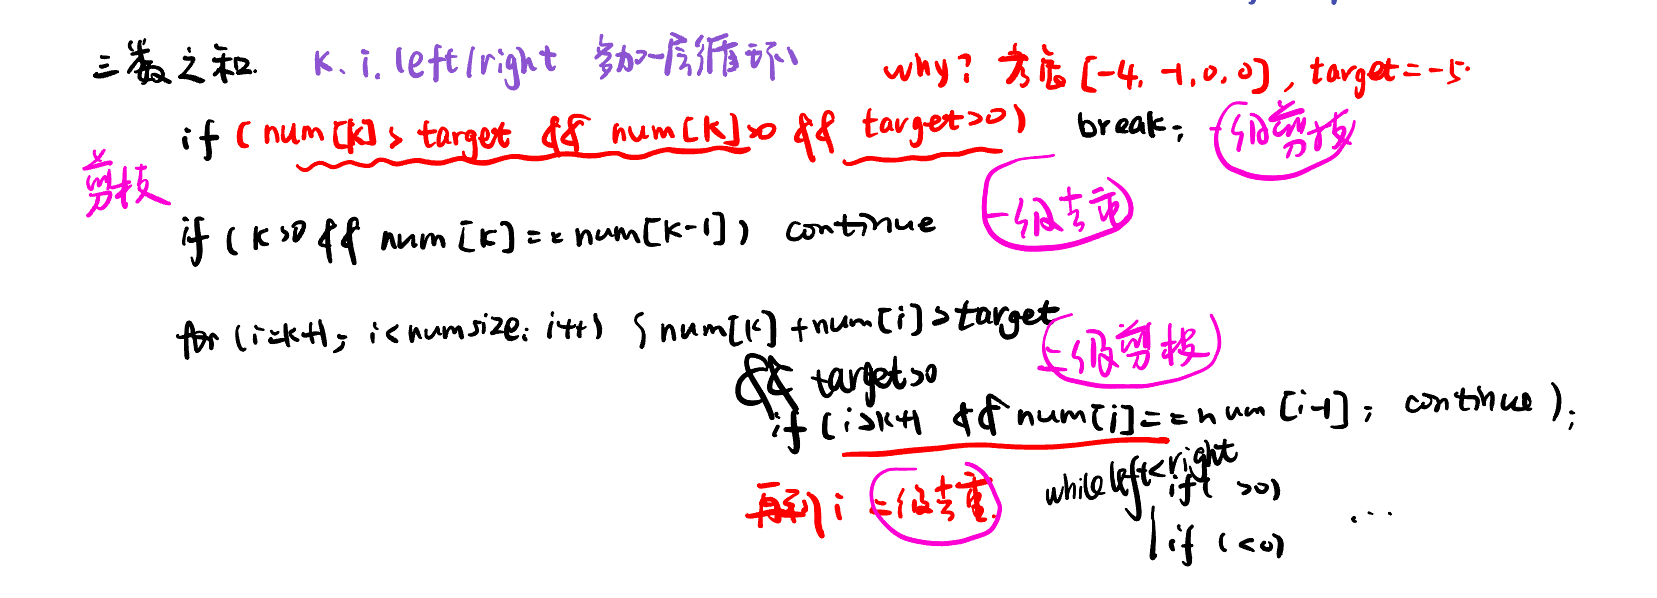 三数之和. K. i. left/right 多加一层循环 why? 考虑 [-4, -1, 0, 0], target = -5.
if (num[k] > target && num[k]>0 && target>0) break; 一级剪枝
剪枝
if (k>0 && num[k]==num[k-1]) continue 一级去重
for (i=k+1; i<numsize; i++) { num[k]+num[i]>target 二级剪枝
&& target>0
if (i>k+1 && num[i]==num[i-1]; continue);
i 二级去重 while left<right
if( >0)
if (<0) ...